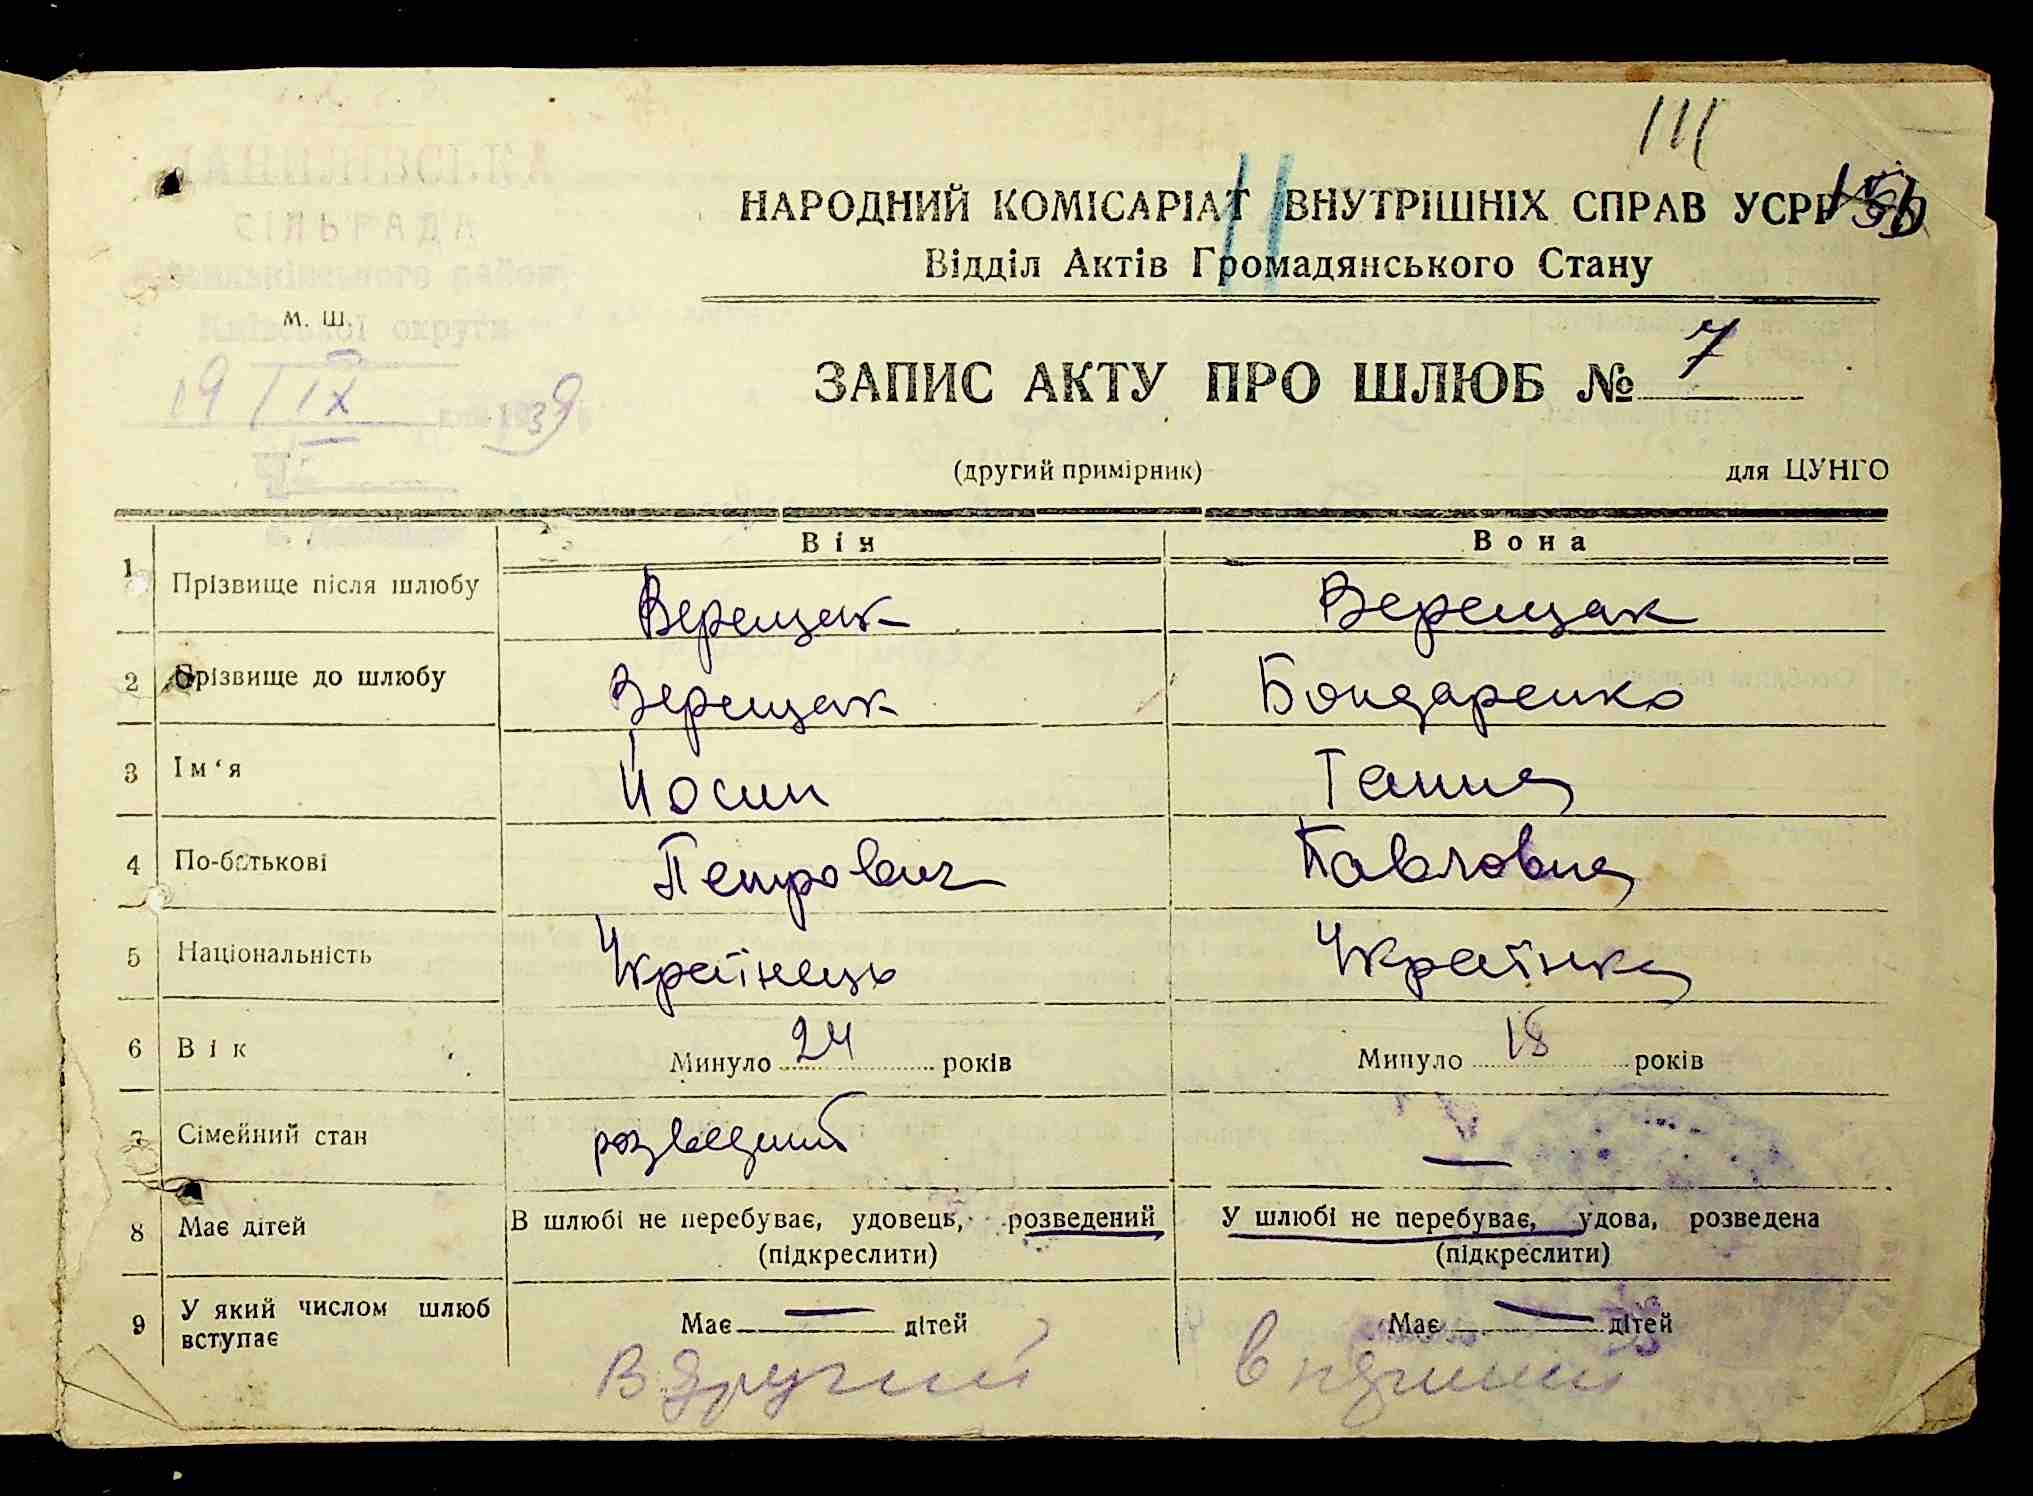 111
НАРОДНИЙ КОМІСАРІАТ ВНУТРІШНІХ СПРАВ УСРР
Відділ Актів Громадянського Стану
ДАНИЛІВСЬКА
СІЛЬРАДА
району
Київської округи
м. ш.
19/IX 1939
ЗАПИС АКТУ ПРО ШЛЮБ № 7
(другий примірник) для ЦУНГО
Він Вона
1 Прізвище після шлюбу Верещак Верещак
2 Прізвище до шлюбу Верещак Бондаренко
3 Ім‘я Йосип Ганна
4 По-батькові Петрович Павловна
5 Національність Українець Українка
6 Вік Минуло 24 років Минуло 18 років
7 Сімейний стан розведений —
8 Має дітей В шлюбі не перебуває, удовець, розведений У шлюбі не перебуває, удова, розведена
(підкреслити) (підкреслити)
9 У який числом шлюб вступає Має — дітей Має — дітей
В другий в перший